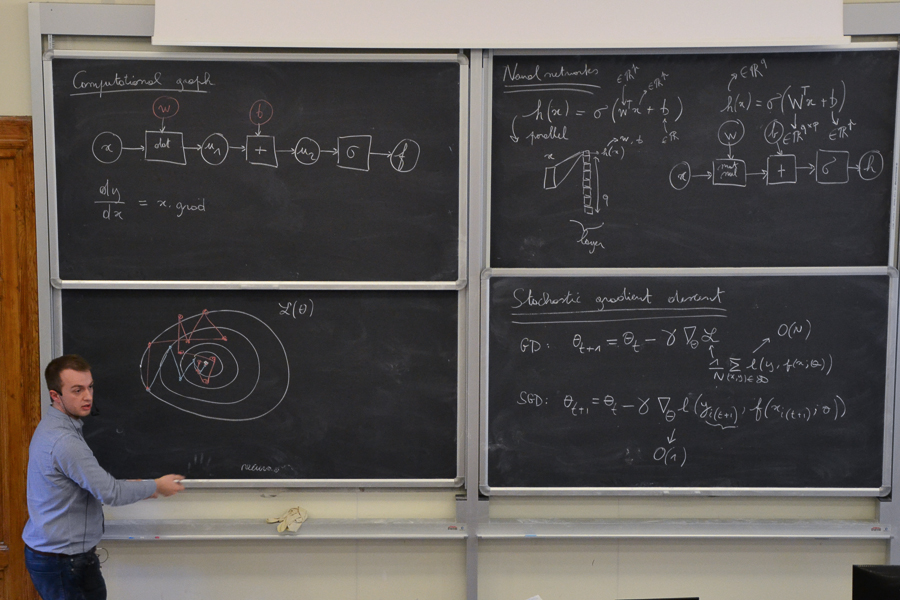 Computational graph
w b
x dot u1 + u2 σ f
dy/dx = x.grad
Neural networks
h(x) = σ(wᵀx + b)
∈ℝᵖ ∈ℝᵖ
∈ℝ
parallel
w, b
x h(x)
q
layer
∈ℝ^q
h(x) = σ(Wᵀx + b)
W b
x mat mul + σ h
L(θ)
Stochastic gradient descent
GD: θ_{t+1} = θ_t − γ ∇_θ L
O(N)
1/N Σ_{(x,y)∈D} l(y, f(x; θ))
SGD: θ_{t+1} = θ_t − γ ∇_θ l(y_{i(t+1)}, f(x_{i(t+1)}; θ))
O(1)